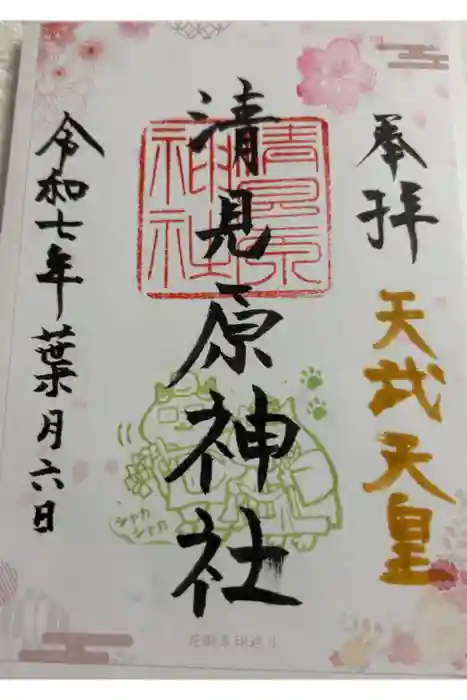 奉拝
天武天皇
清見原神社
清見原神社
シャカ
シャカ
令和七年葉月六日
花御朱印巡り